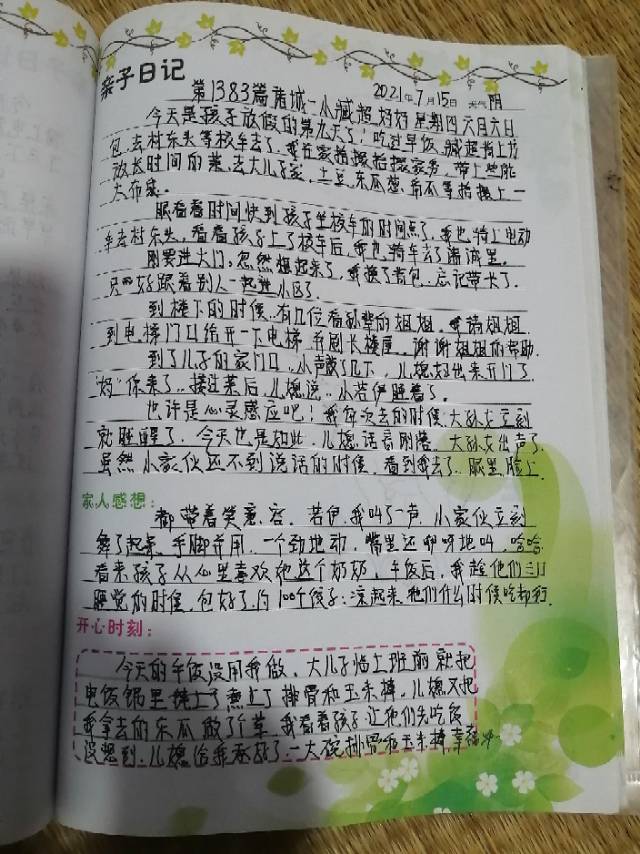 亲子日记
第1383篇诸城一小臧超妈妈星期四六月六日
2021年7月15日 天气阴
今天是孩子放假的第九天了!吃过早饭,臧超背上书
包,去村东头等校车去了。我在家拾掇拾掇家务,带上些能
放长时间的菜,去大儿子家,土豆,东瓜,葱,等拾掇上一
大布袋。
眼看着时间快到孩子坐校车的时间点了,我也骑上电动
车去村东头,看着孩子上了校车后,我也骑车去了潇湘里。
刚要进大门,忽然想起来了,我换了背包,忘记带卡了。
只好跟着别人一起进小区了。
到楼下的时候,有几位看孙辈的姐姐,我请姐姐
到电梯门口给开一下电梯,谢谢姐姐的帮助。
到了儿子的家门口,小声敲了几下,儿媳妇出来开门了,
"妈"你来了,接过菜后,儿媳说,小若伊睡着了。
也许是心灵感应吧!我每次去的时候,大孙女立刻
就睡醒了,今天也是如此,儿媳话音刚落,大孙女出声了,
虽然小家伙还不到说话的时候,看到我去了,眼里,脸上,
家人感想:
都带着笑意,若伊,我叫了一声,小家伙立刻
舞了起来,手脚并用,一个劲地动,嘴里还咿呀地叫,哈哈,
看来孩子从心里喜欢她这个奶奶,午饭后,我趁他们
睡觉的时候,包好了,约100个饺子:凉起来,他们什么时候吃都行
开心时刻:
今天的午饭没用我做,大儿子临上班前就把
电饭锅里炖上了排骨和玉米棒,儿媳又把
我拿去的东瓜做了个菜,我看着孩子让他们先吃饭
没想到,儿媳给我盛好了一大碗排骨和玉米棒,幸福